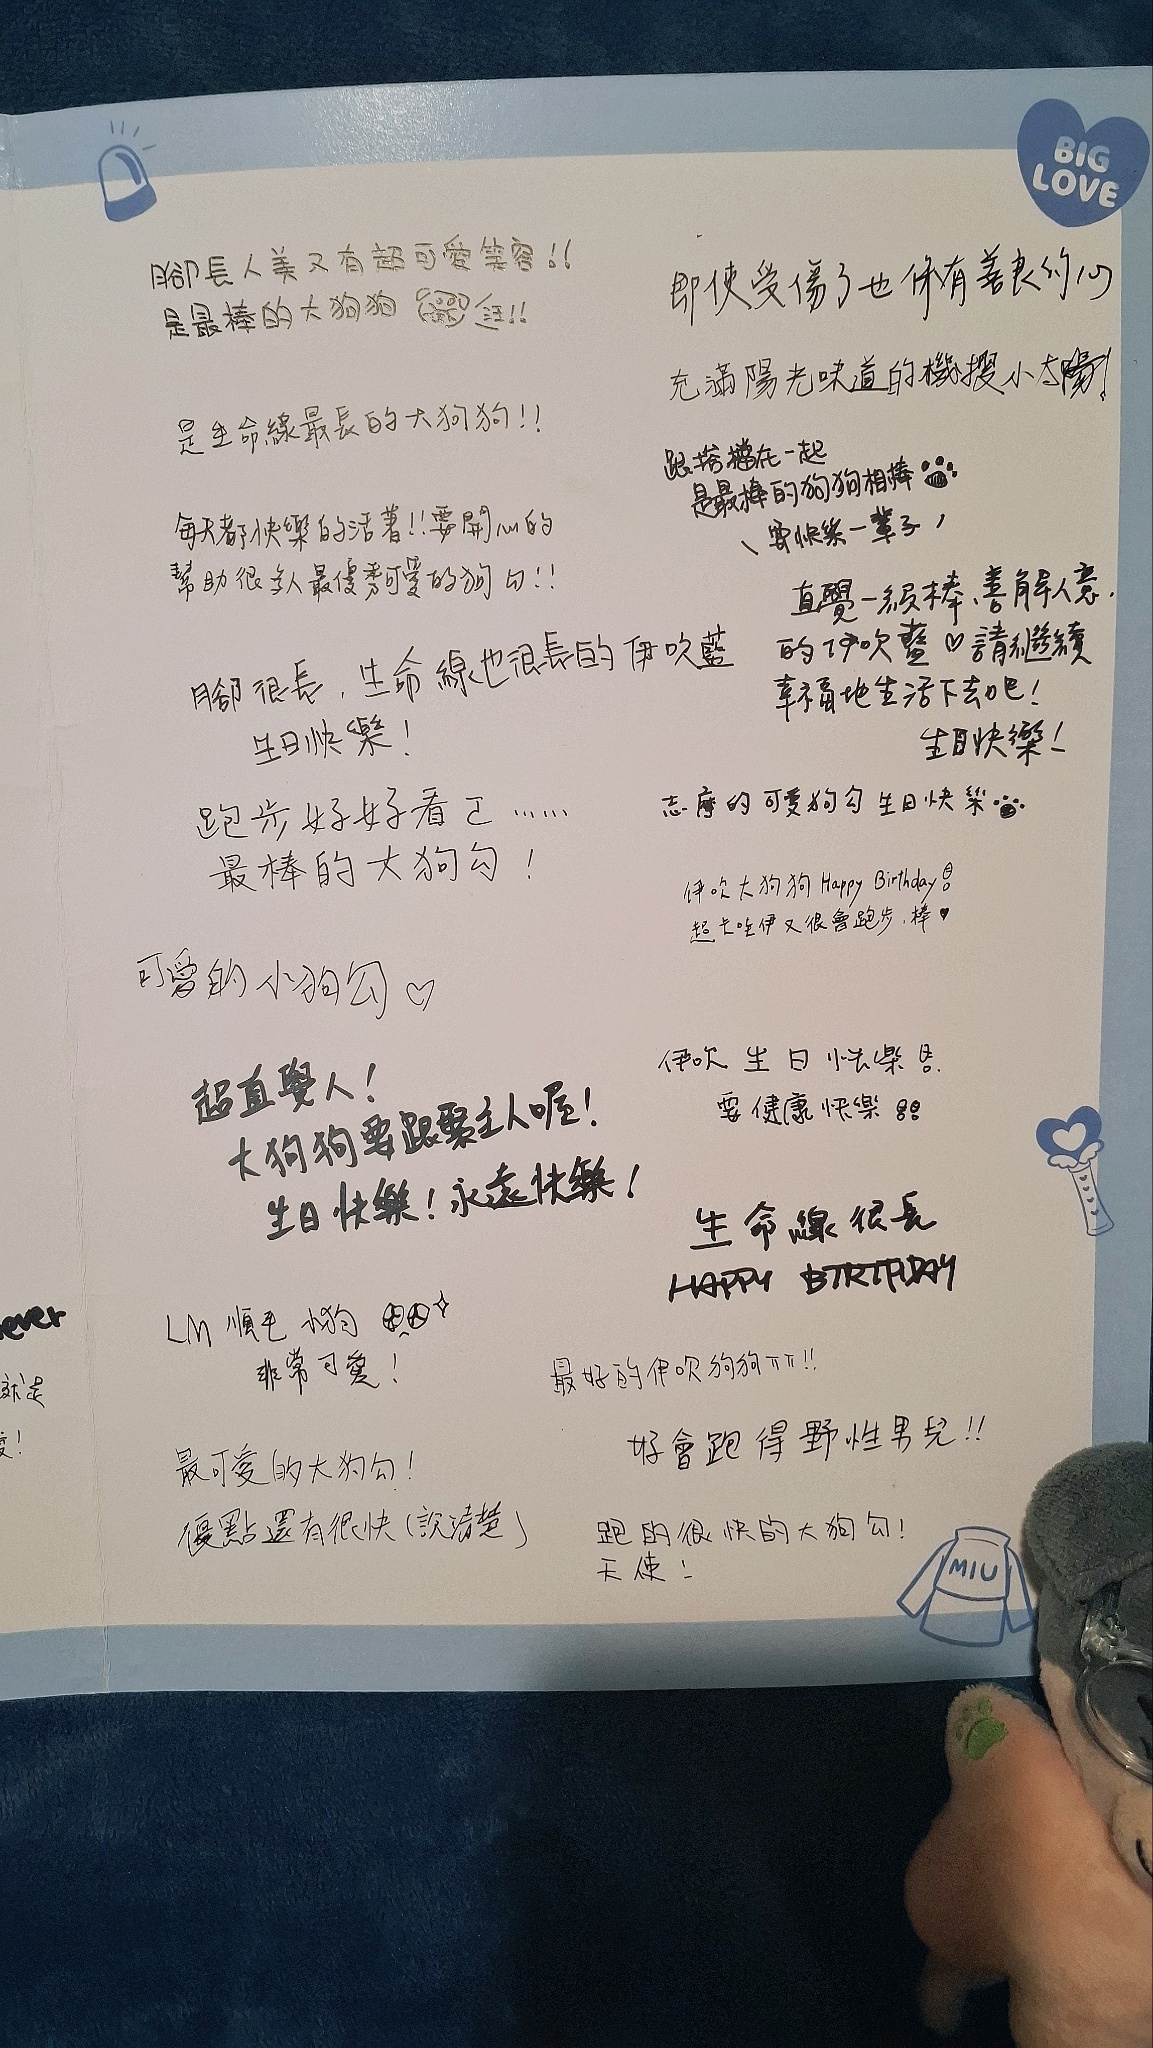 BIG
LOVE
腳長人美又有超可愛笑容!!
是最棒的大狗狗
是生命線最長的大狗狗!!
每天都快樂的活著!!要開心的
幫助很多人最優秀可愛的狗勾!!
腳很長，生命線也很長的伊吹藍
生日快樂！
跑步好好看ㄛ……
最棒的大狗勾！
可愛的小狗勾♡
超直覺人！
大狗狗要跟緊主人喔！
生日快樂！永遠快樂！
LM 順毛小狗
非常可愛！
最可愛的大狗勾！
優點還有很快（說清楚）
即使受傷了也保有善良的心
充滿陽光味道的機搜小太陽！
跟搭檔在一起
是最棒的狗狗相棒
\ 要快樂一輩子 /
直覺一級棒、善解人意
的伊吹藍♡請繼續
幸福地生活下去吧！
生日快樂！
志摩的可愛狗勾生日快樂
伊吹大狗狗 Happy Birthday
超卡哇伊又很會跑步、棒♥
伊吹生日快樂
要健康快樂
生命線很長
HAPPY BIRTHDAY
最好的伊吹狗狗ㄇㄇ!!
好會跑得野性男兒!!
跑的很快的大狗勾！
天使！
MIU
ever
就是